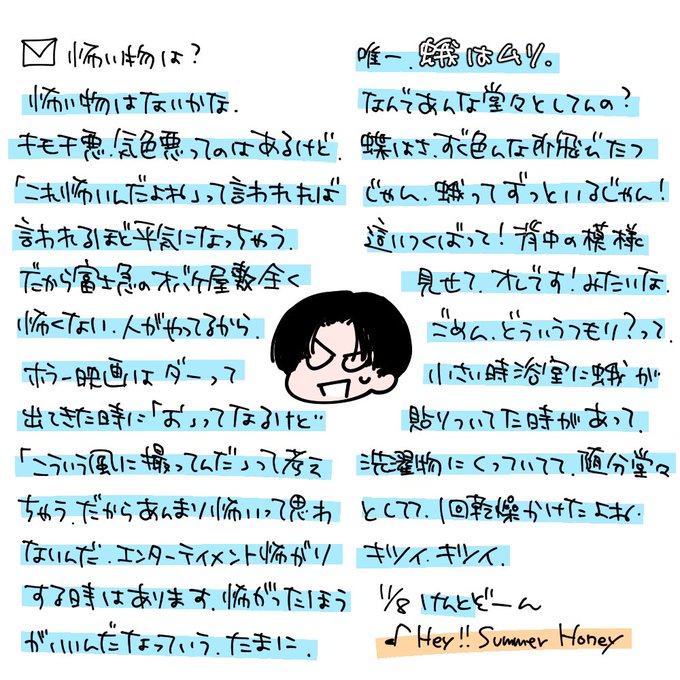 怖い物は?
怖い物はないかな.
キモチ悪.気色悪ってのはあるけど.
「これ怖いんだよね」って言われれば
言われるほど平気になっちゃう.
だから富士急のオバケ屋敷全く
怖くない.人がやってるから.
ホラー映画はダーって
出てきた時に「お」ってなるけど
「こういう風に撮ってんだ」って考え
ちゃう.だからあんまり怖いって思わ
ないんだ.エンターテイメント怖がり
する時はあります.怖がったほう
がいいんだなっていう.たまに.
唯一.蛾はムリ。
なんであんな堂々としてんの?
蝶はさ.すぐ色んな所飛びたつ
じゃん.蛾ってずっといるじゃん!
這いつくばって!背中の模様
見せて.オレです!みたいな.
ごめん.どういうつもり?って.
小さい時浴室に蛾が
貼りついてた時があって.
洗濯物にくっついてて.随分堂々
としてて.1回乾燥かけたよね.
キツイ.キツイ.
11/8 けんとどーん
♪Hey!! Summer Honey